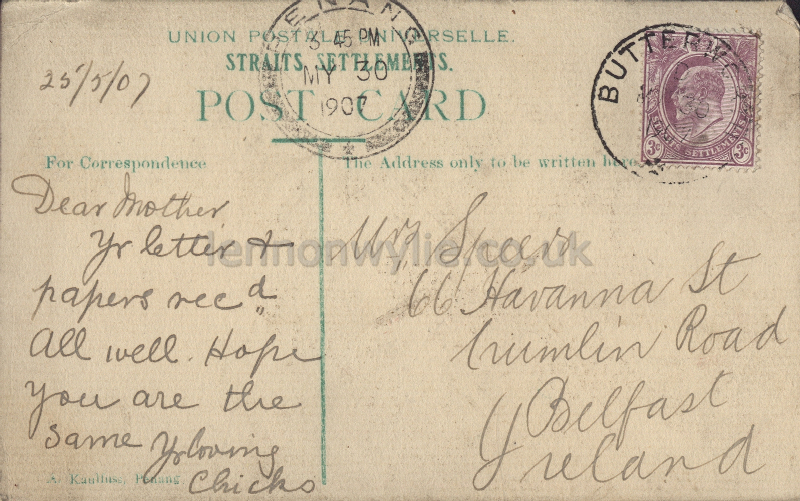 UNION POSTALE UNIVERSELLE.
STRAITS SETTLEMENTS.
POST CARD
PENANG
3 45 PM
MY 30
1907
BUTTERWO
3c 3c
25/5/07
For Correspondence
The Address only to be written here.
Dear Mother
Yr letter &
papers rec d
All well. Hope
you are the
same Yr loving
Chicks
Mrs Speers
66 Havanna St
Crumlin Road
Belfast
Ireland
lennonwylie.co.uk
Penang.